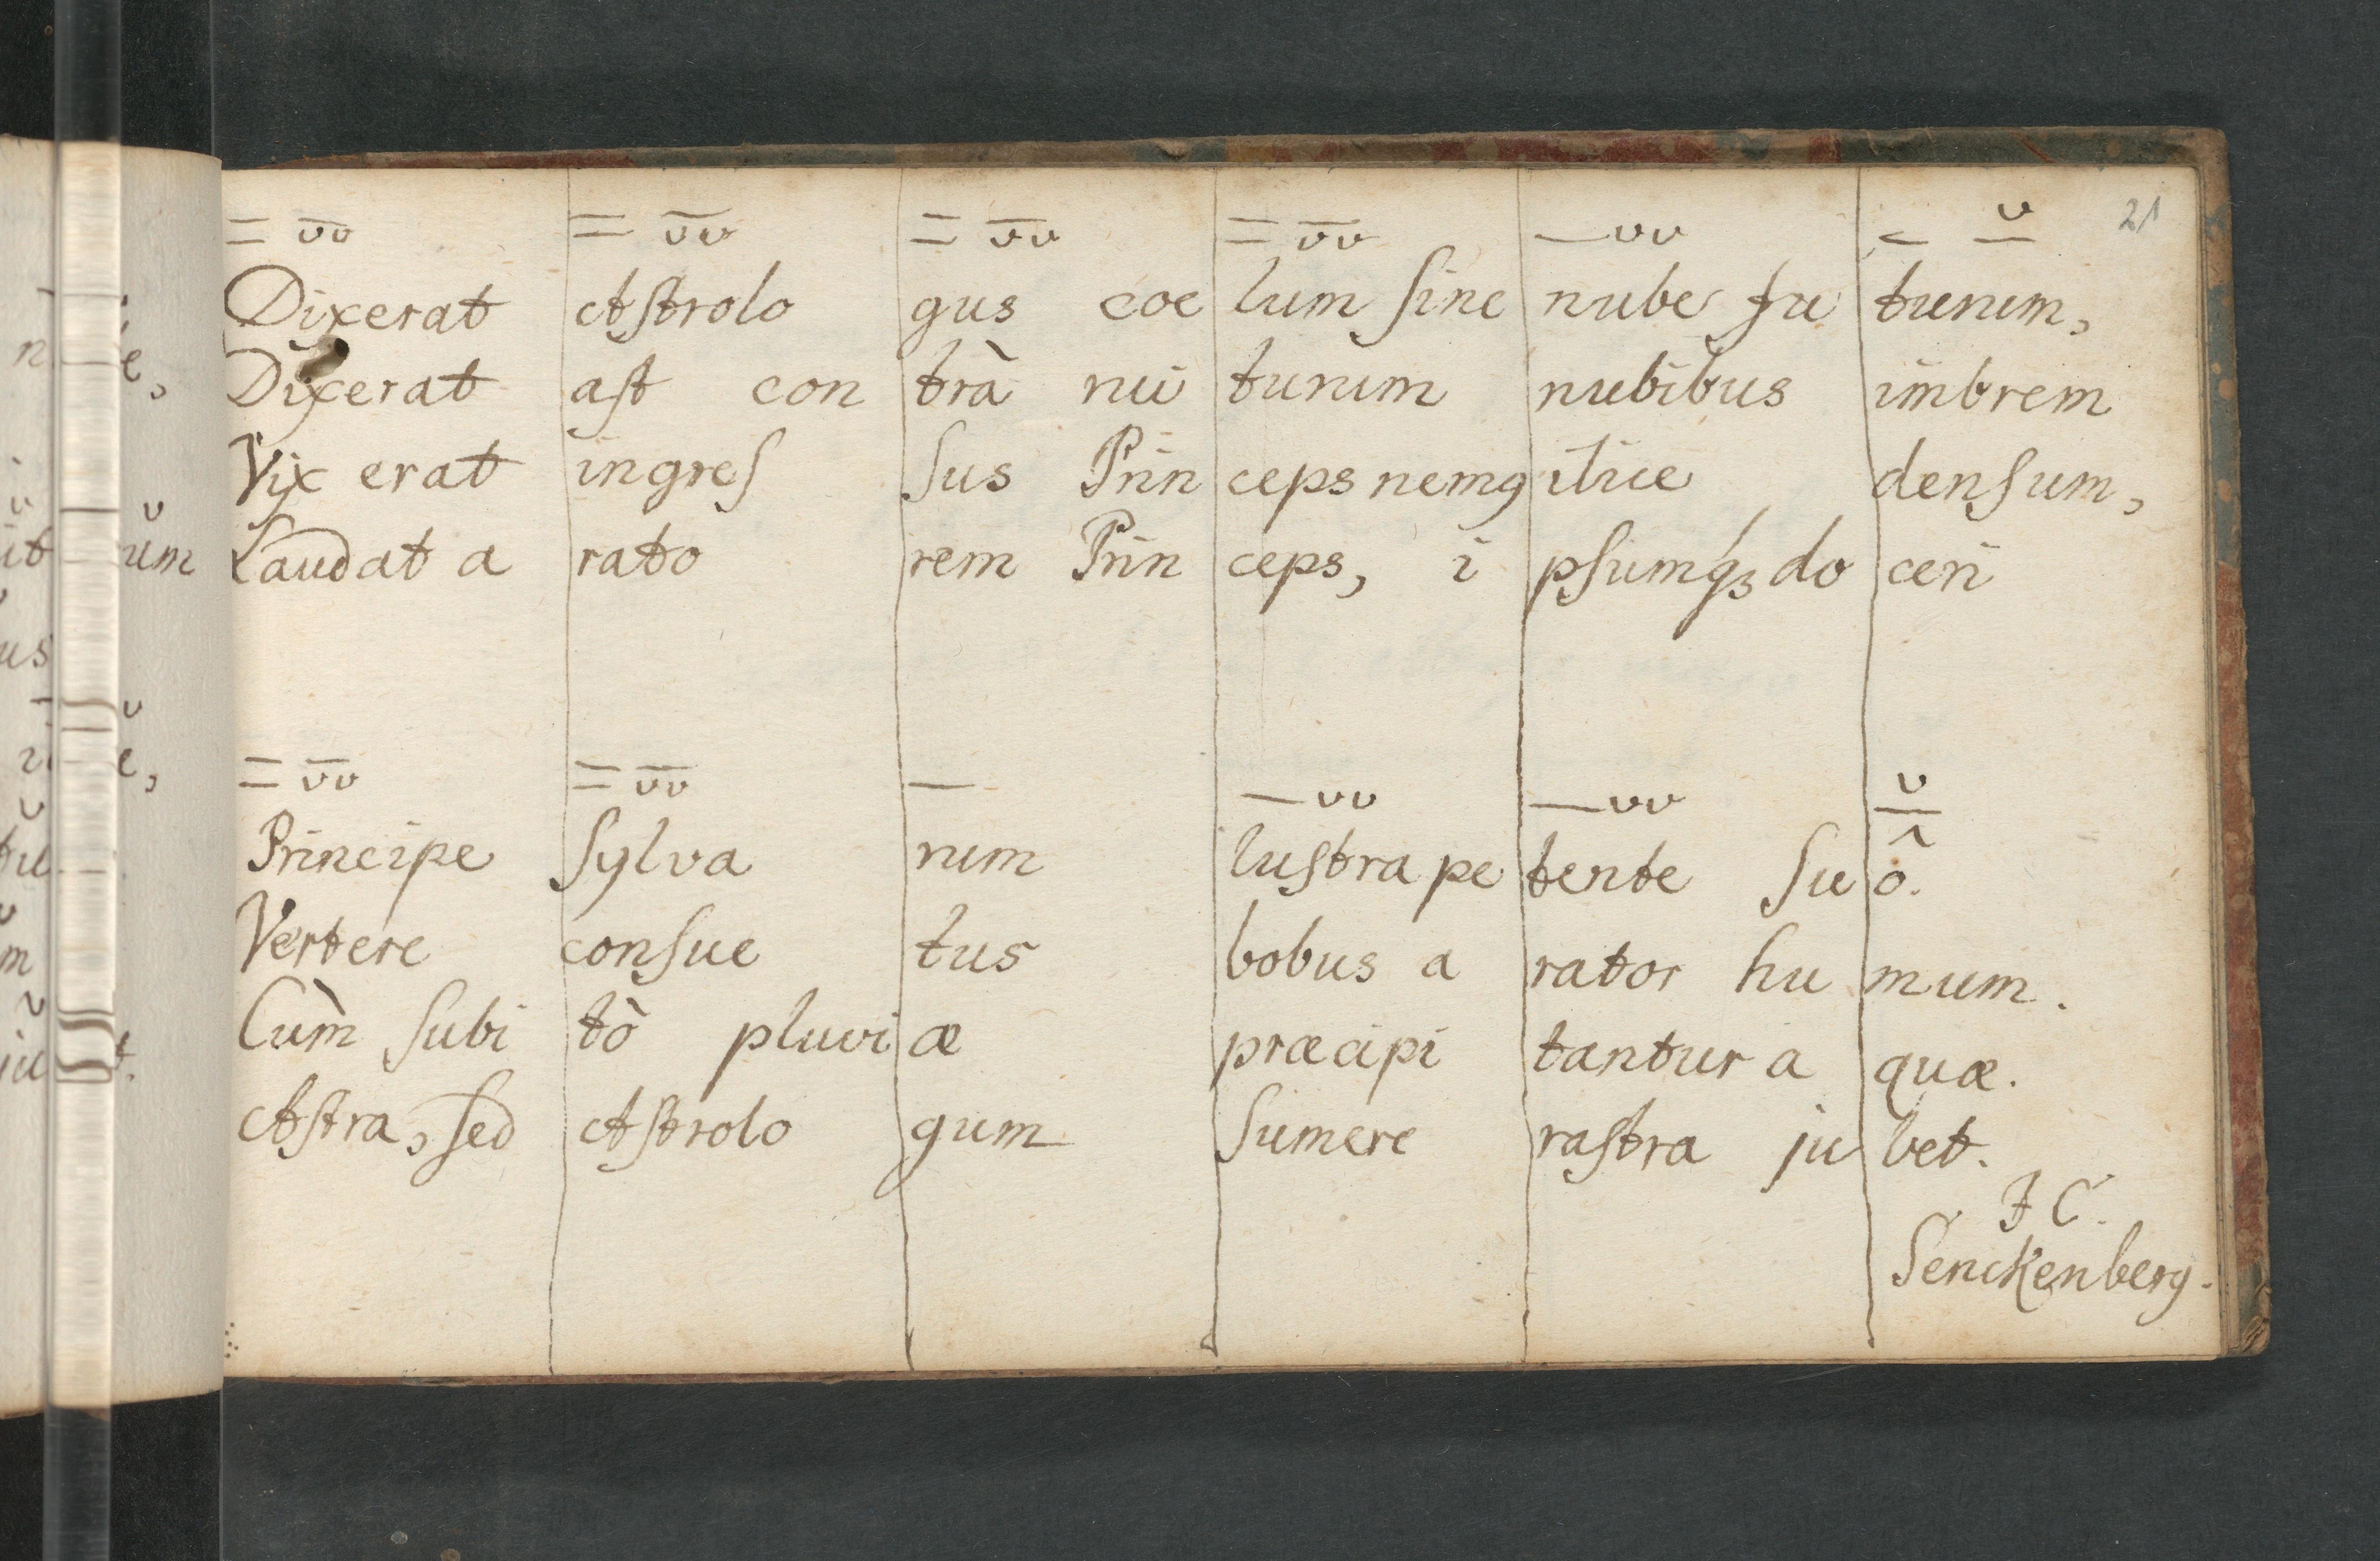 21
Dixerat Astrolo gus coe lum sine nube fu turum,
Dixerat ast con trà rui turum nubibus imbrem
Vix erat ingres sus Prin ceps nemq ilice densum,
Laudat a rato rem Prin ceps, i psumq́ꝫ do ceri
Principe Sylva rum lustra pe tente su ô.
Vertere consue tus bobus a rator hu mum.
Cùm subi tò pluvi æ præcipi tantur a quæ.
Astra, sed Astrolo gum sumere rastra ju bet.
J C.
Senckenberg.